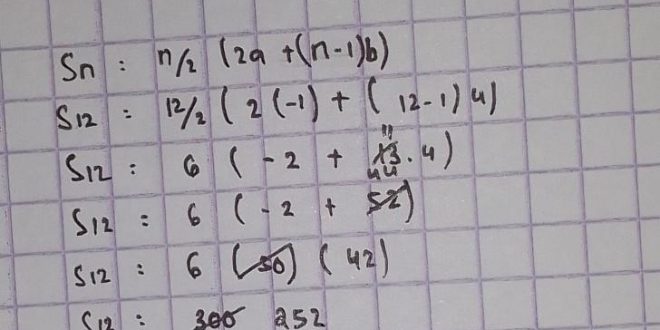 Sn : n/2 (2a + (n-1)b)
S12 : 12/2 ( 2 (-1) + ( 12-1) 4)
S12 : 6 ( - 2 + 11 . 4)
S12 : 6 ( - 2 + 44)
S12 : 6 ( 42)
S12 : 252